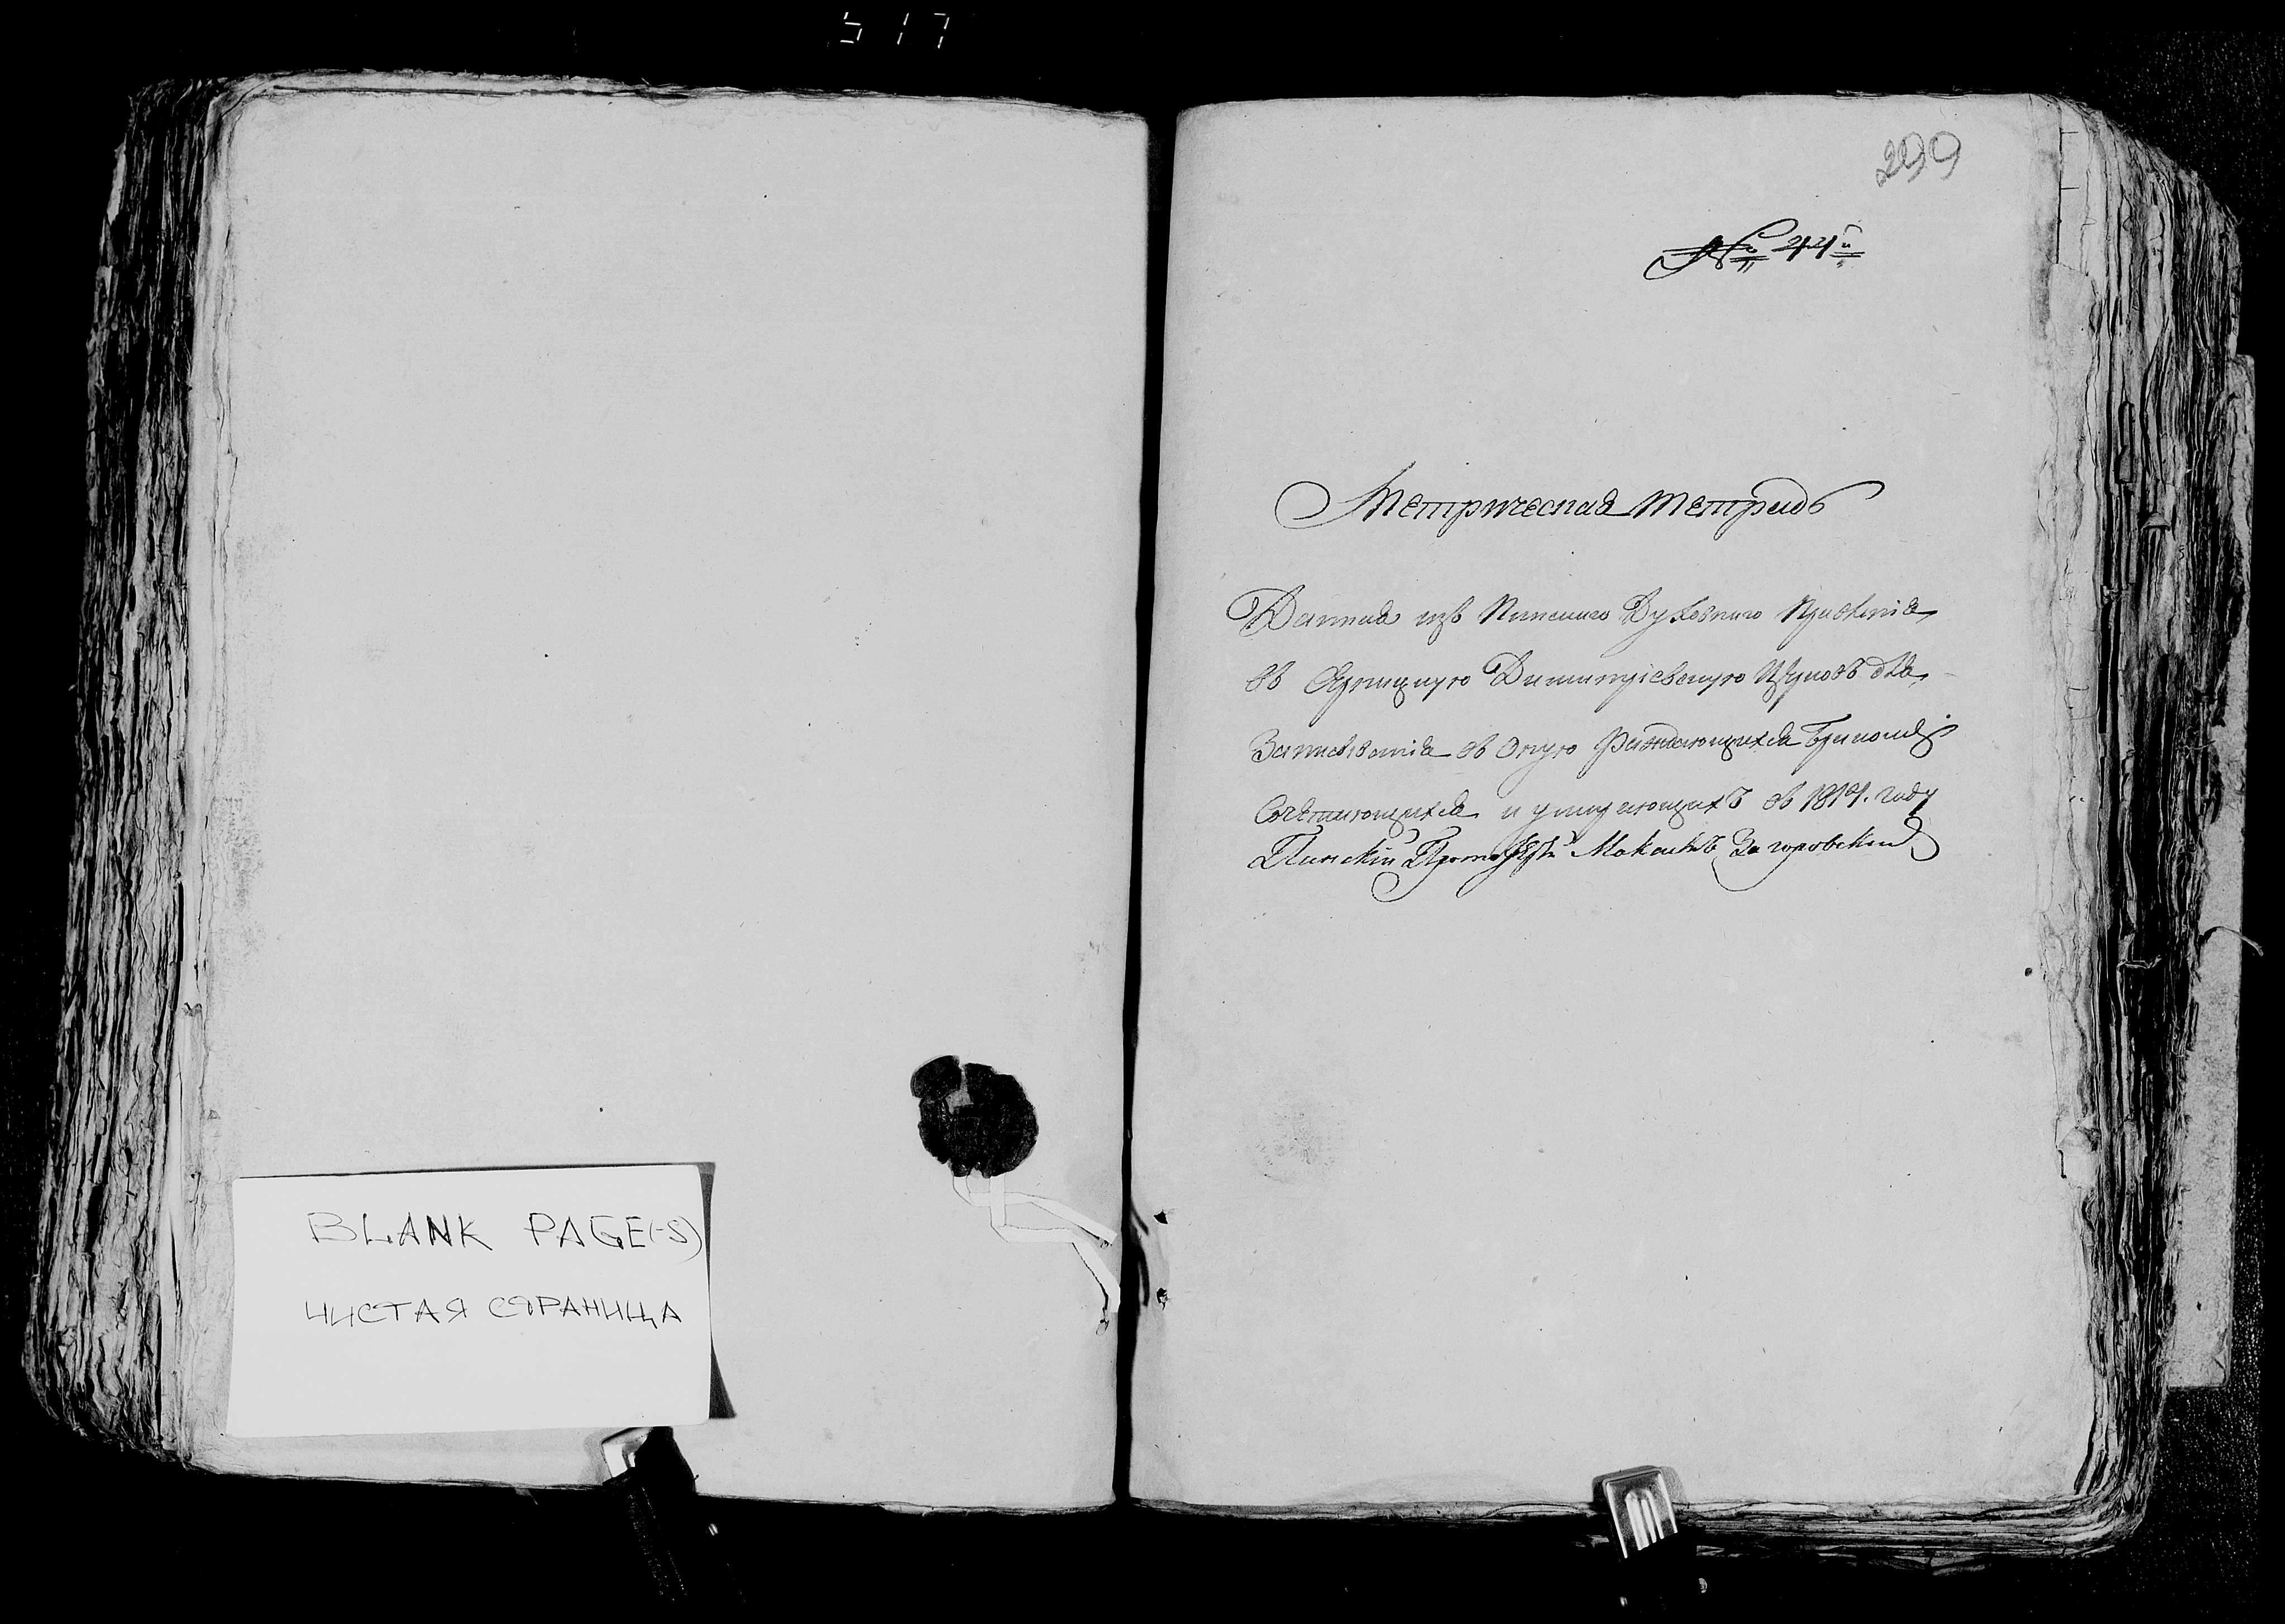 517
BLANK PAGE(-S)
ЧИСТАЯ СТРАНИЦА
299
№ 44й
Метрическая тетрадь
Данная изъ Пинскаго Духовнаго Правленія
въ Димитріевскую Церковь для
Записыванія въ оную Раждающихся Бракомъ
Сочетающихся и умирающихъ въ 1814. году
Пинскій Загоровскій